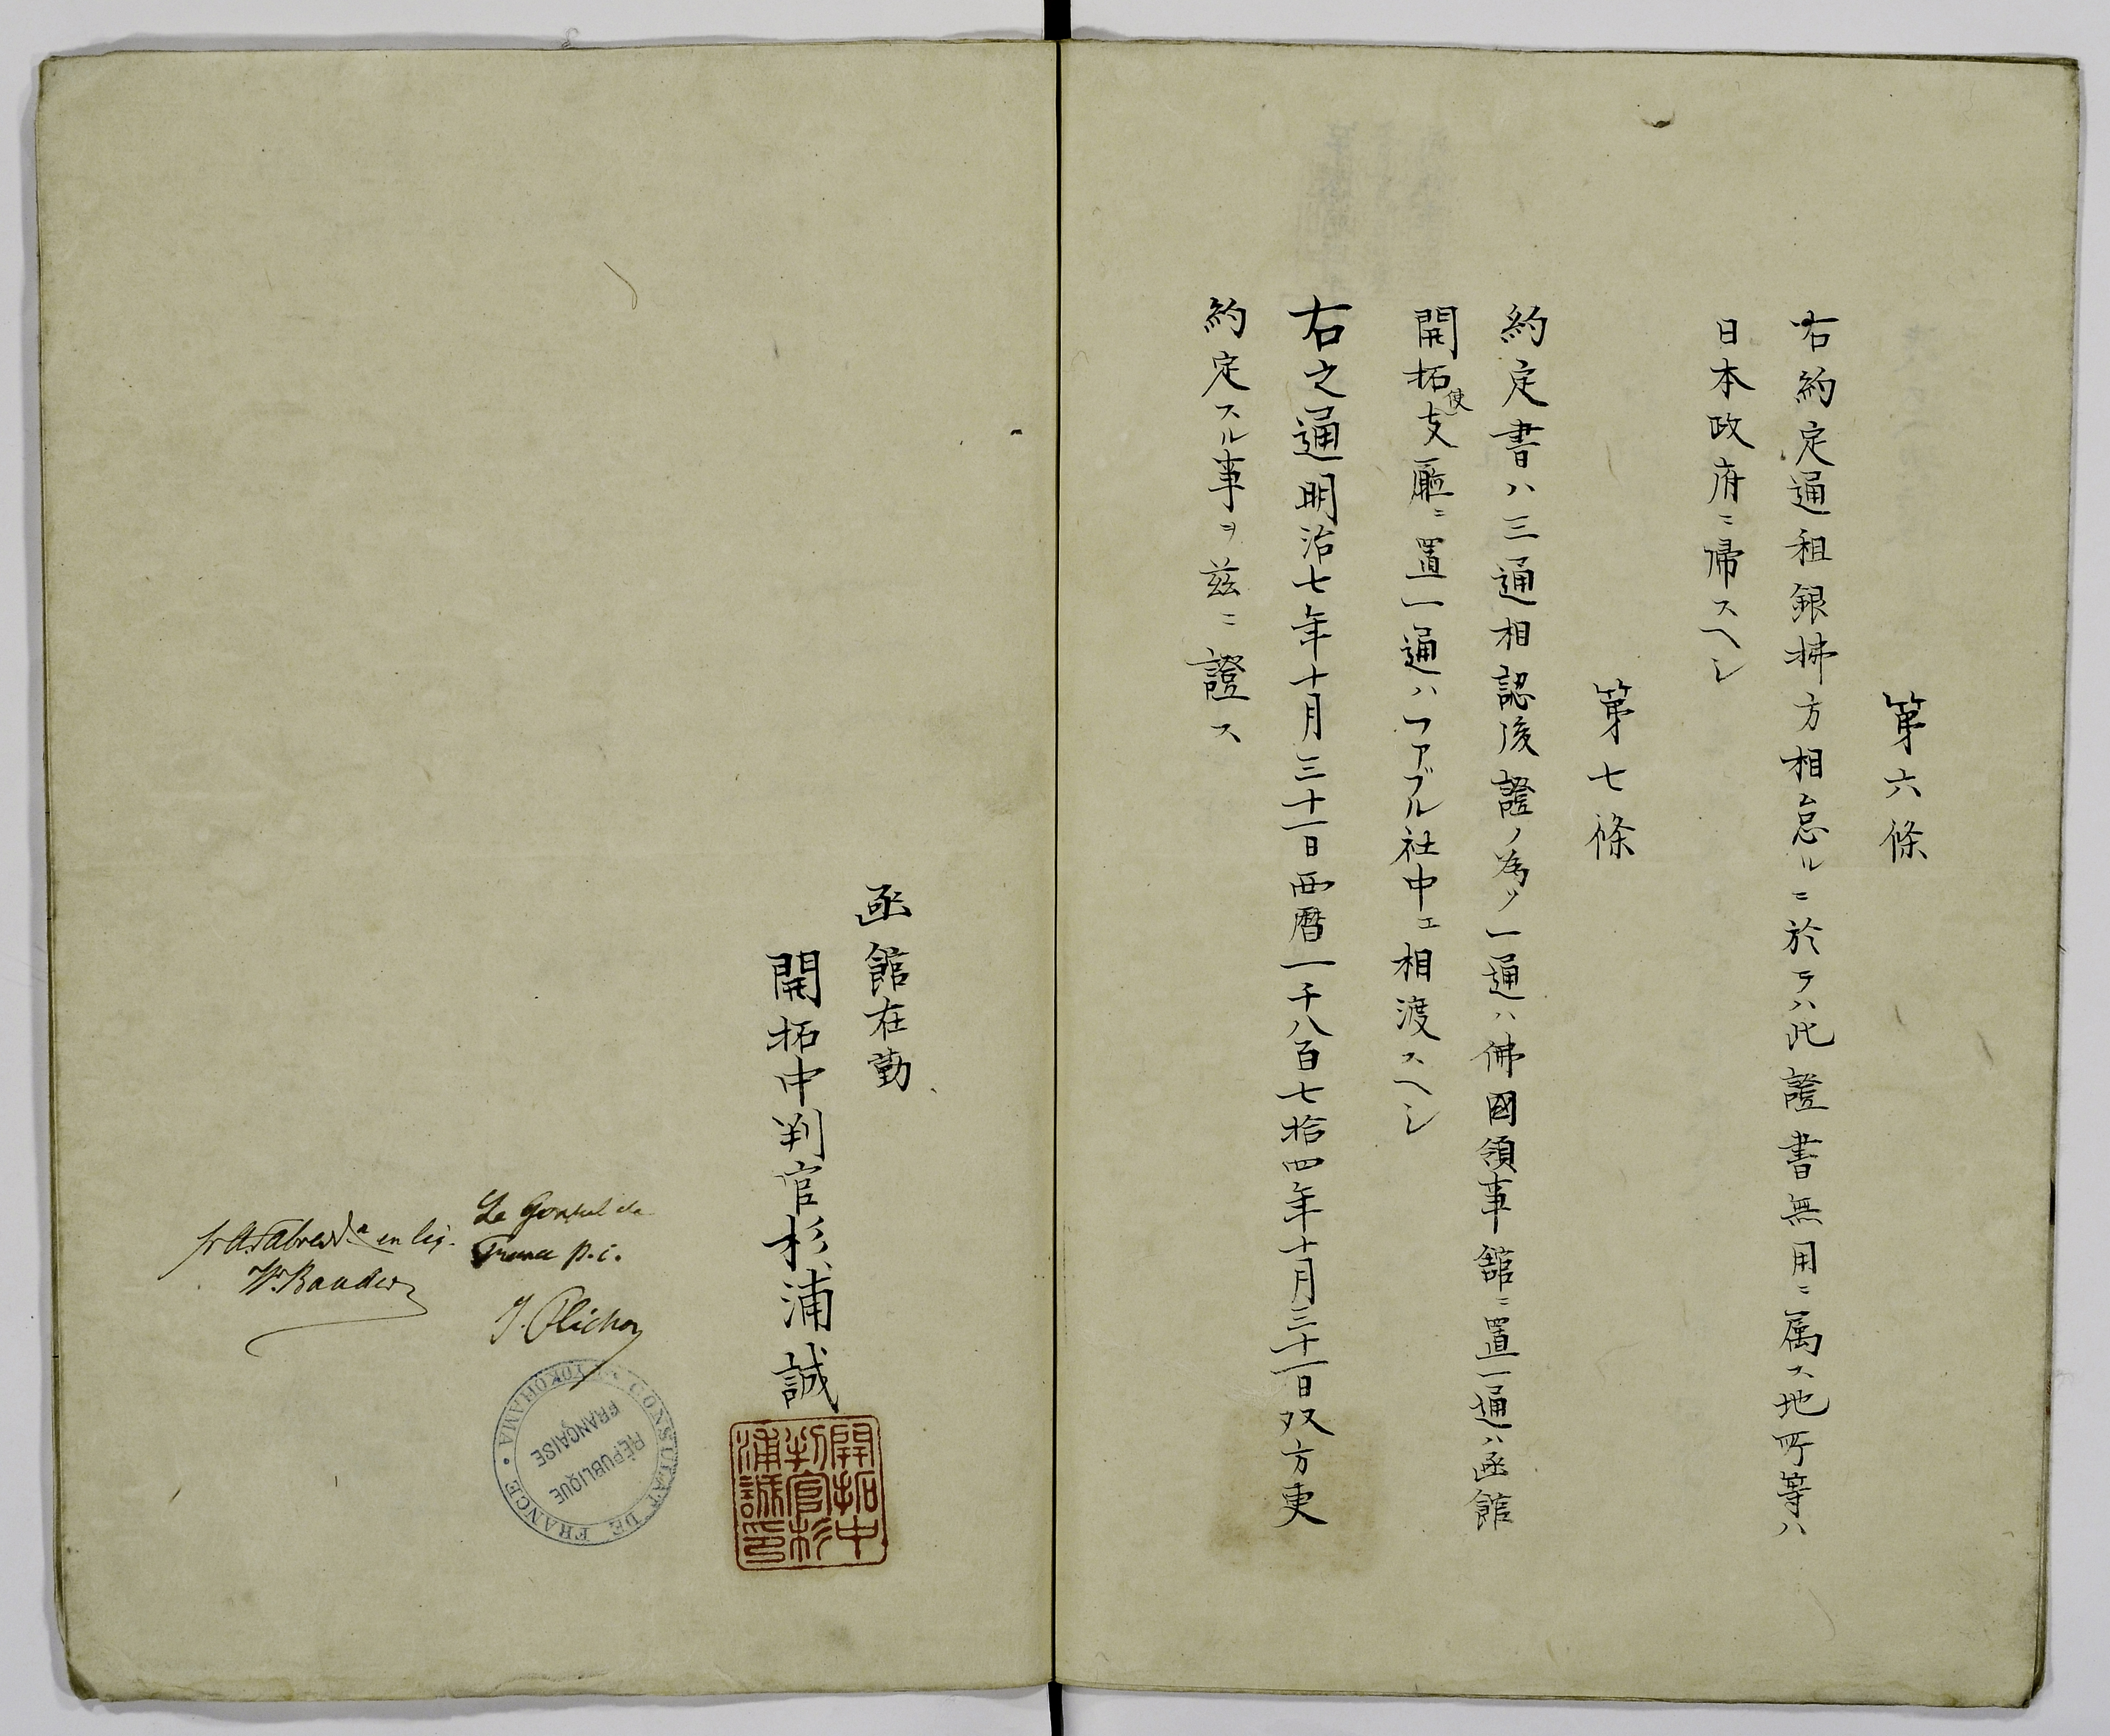 第六條
右約定通租銀拂方相怠ルニ於テハ此證書無用ニ属ス地所等ハ
日本政府ニ帰スヘシ
第七條
約定書ハ三通相認後證ノ為メ一通ハ佛國領事舘ニ置一通ハ函館
開拓使支廳ニ置一通ハファブル社中エ相渡スヘシ
右之通明治七年十月三十一日西暦一千八百七拾四年十月三十一日双方更
約定スル事ヲ茲ニ證ス
函館在勤
開拓中判官杉浦誠
開拓中
判官杉
浦誠印
Le Consul de
France p.i.
en liq.
CONSULAT DE FRANCE • YOKOHAMA •
RÉPUBLIQUE
FRANÇAISE